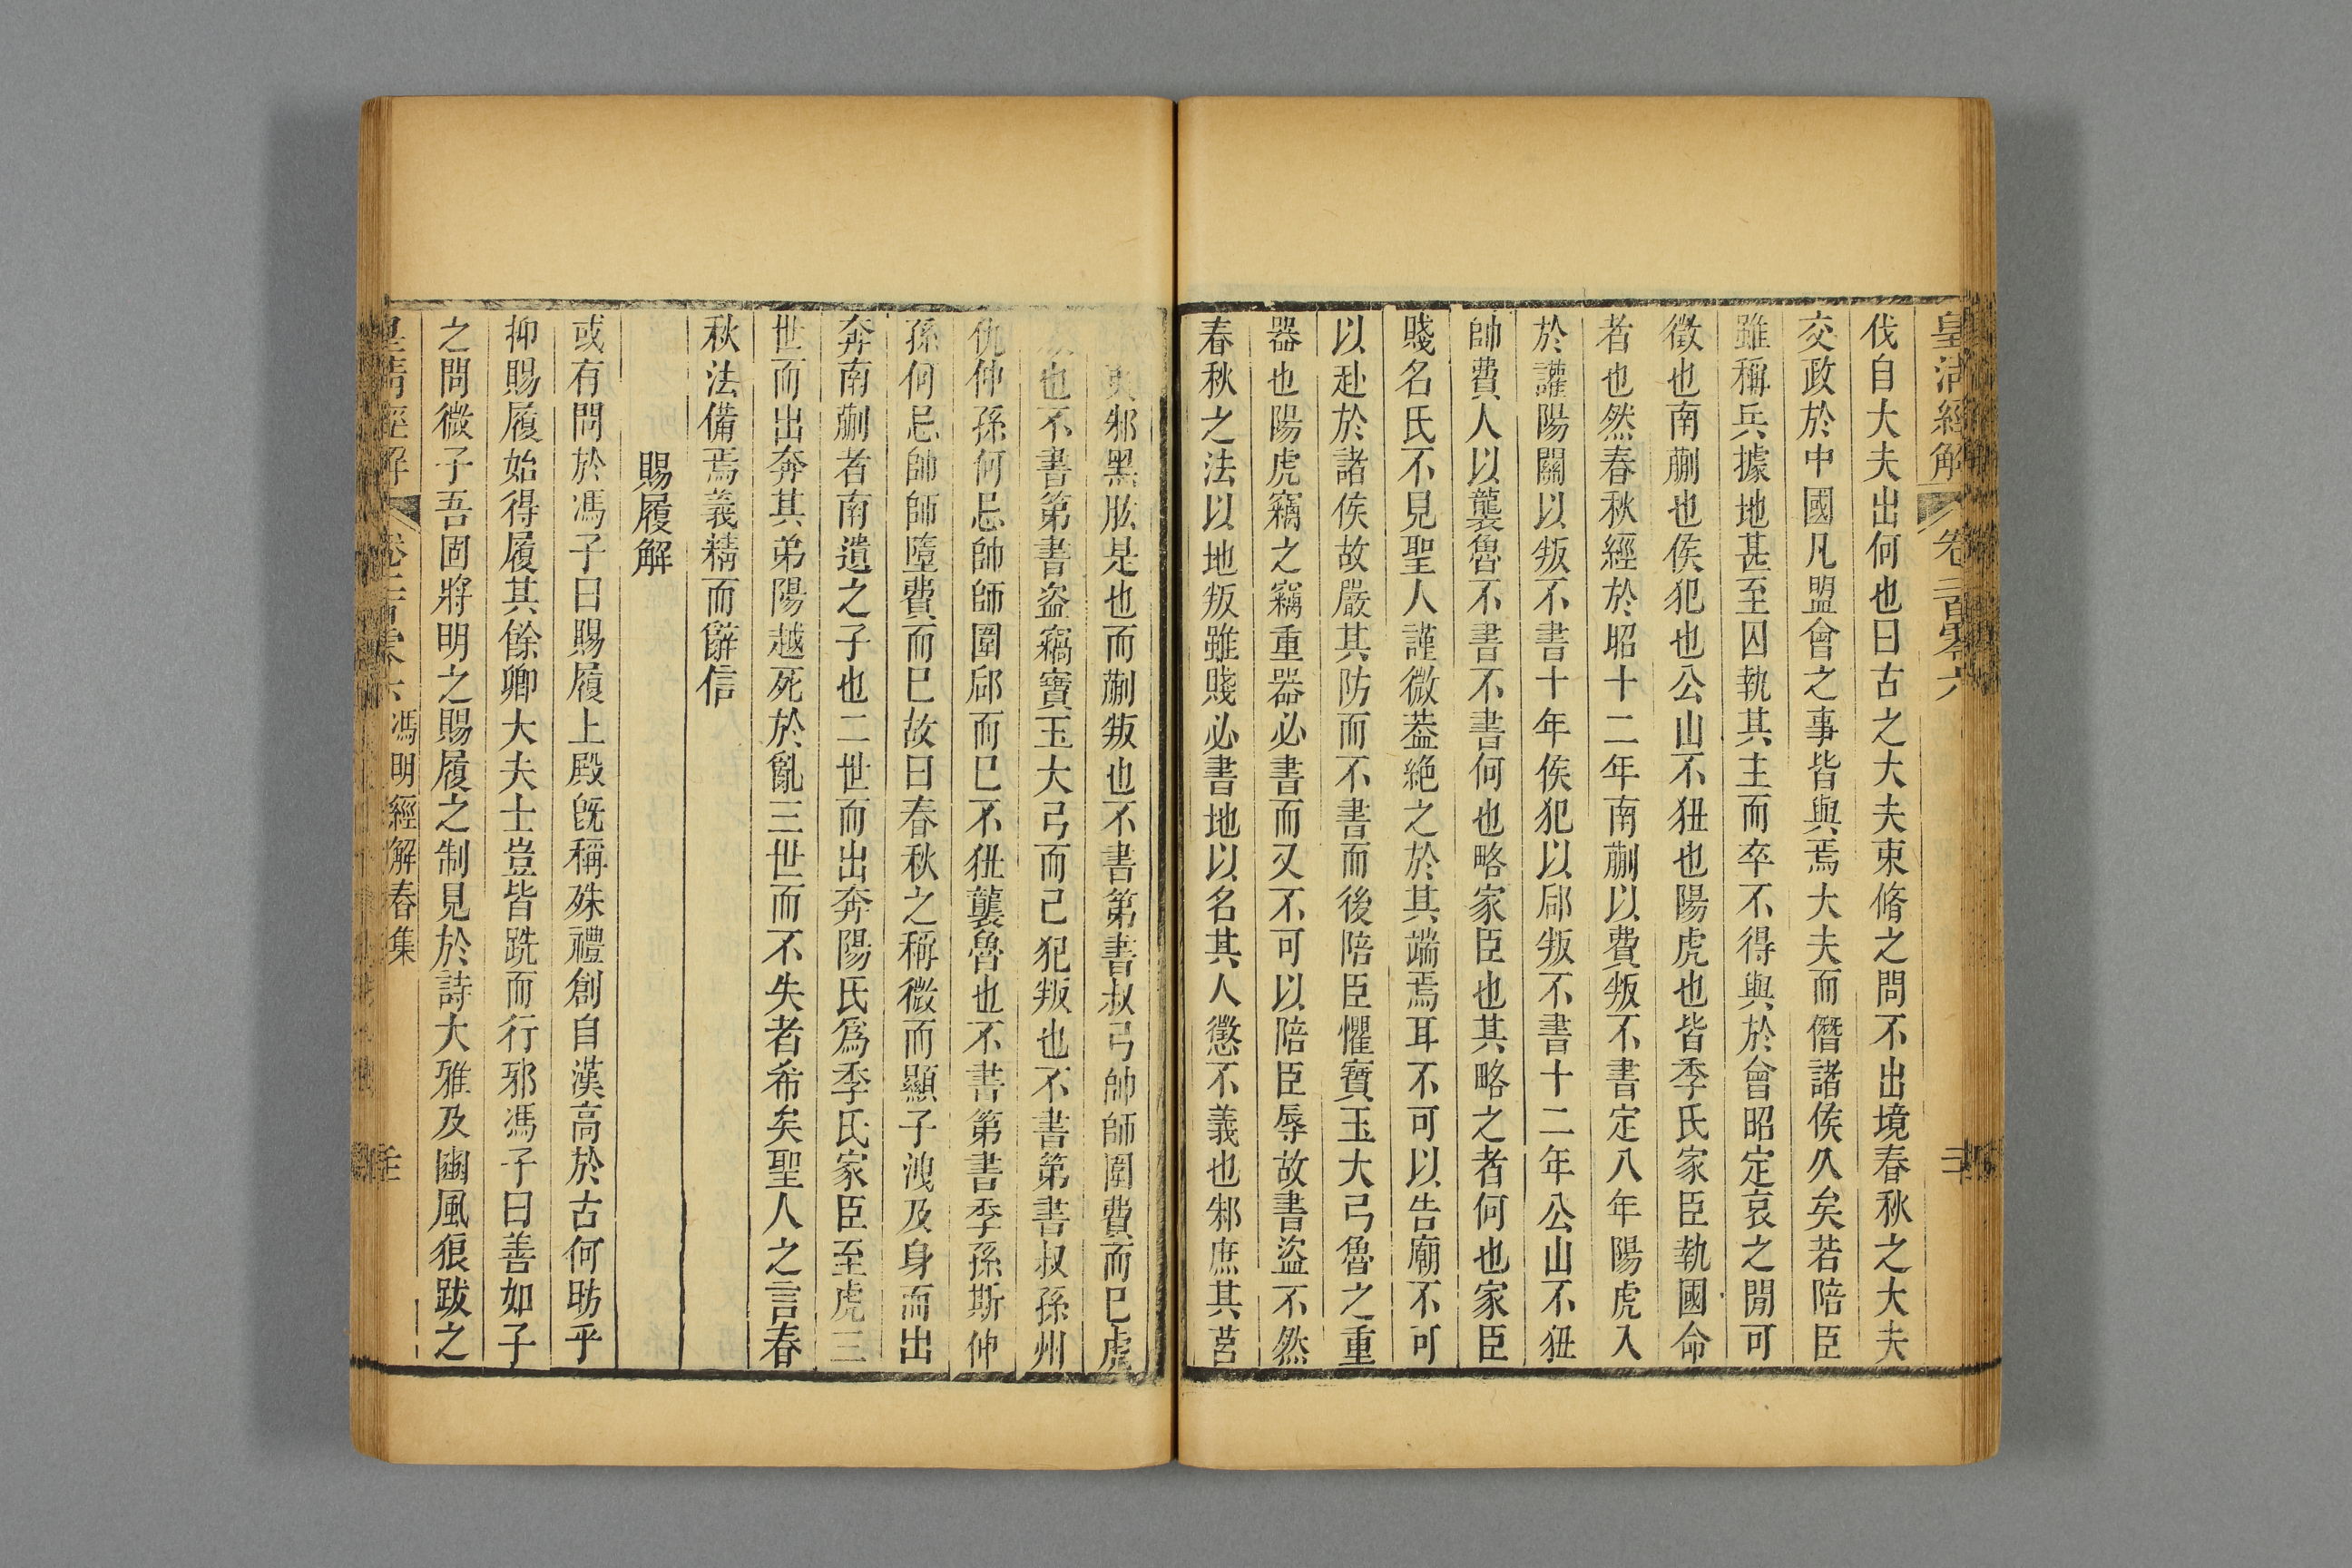 皇清經解 卷二百零六
伐自大夫出何也曰古之大夫束脩之問不出境春秋之大夫
交政於中國凡盟會之事皆與焉大夫而僭諸侯久矣若陪臣
雖稱兵據地甚至囚執其主而卒不得與於會昭定哀之閒可
徵也南蒯也侯犯也公山不狃也陽虎也皆季氏家臣執國命
者也然春秋經於昭十二年南蒯以費叛不書定八年陽虎入
於讙陽關以叛不書十年侯犯以郈叛不書十二年公山不狃
帥費人以襲魯不書不書何也略家臣也其略之者何也家臣
賤名氏不見聖人謹微葢絶之於其端焉耳不可以告廟不可
以赴於諸侯故嚴其防而不書而後陪臣懼寶玉大弓魯之重
器也陽虎竊之竊重器必書而又不可以陪臣辱故書盜不然
春秋之法以地叛雖賤必書地以名其人懲不義也邾庶其莒
夷邾黑肱是也而蒯叛也不書第書叔弓帥師圍費而巳虎
也不書第書盜竊寶玉大弓而己犯叛也不書第書叔孫州
仇仲孫何忌帥師圍郈而巳不狃襲魯也不書第書季孫斯仲
孫何忌帥師墮費而巳故曰春秋之稱微而顯子洩及身而出
奔南蒯者南遺之子也二世而出奔陽氏爲季氏家臣至虎三
世而出奔其弟陽越死於亂三世而不失者希矣聖人之言春
秋法備焉義精而辭信
賜履解
或有問於馮子曰賜履上殿旣稱殊禮創自漢高於古何昉乎
抑賜履始得履其餘卿大夫士豈皆跣而行邪馮子曰善如子
之問微子吾固將明之賜履之制見於詩大雅及豳風狼跋之
皇清經解 卷二百零六 馮明經解春集